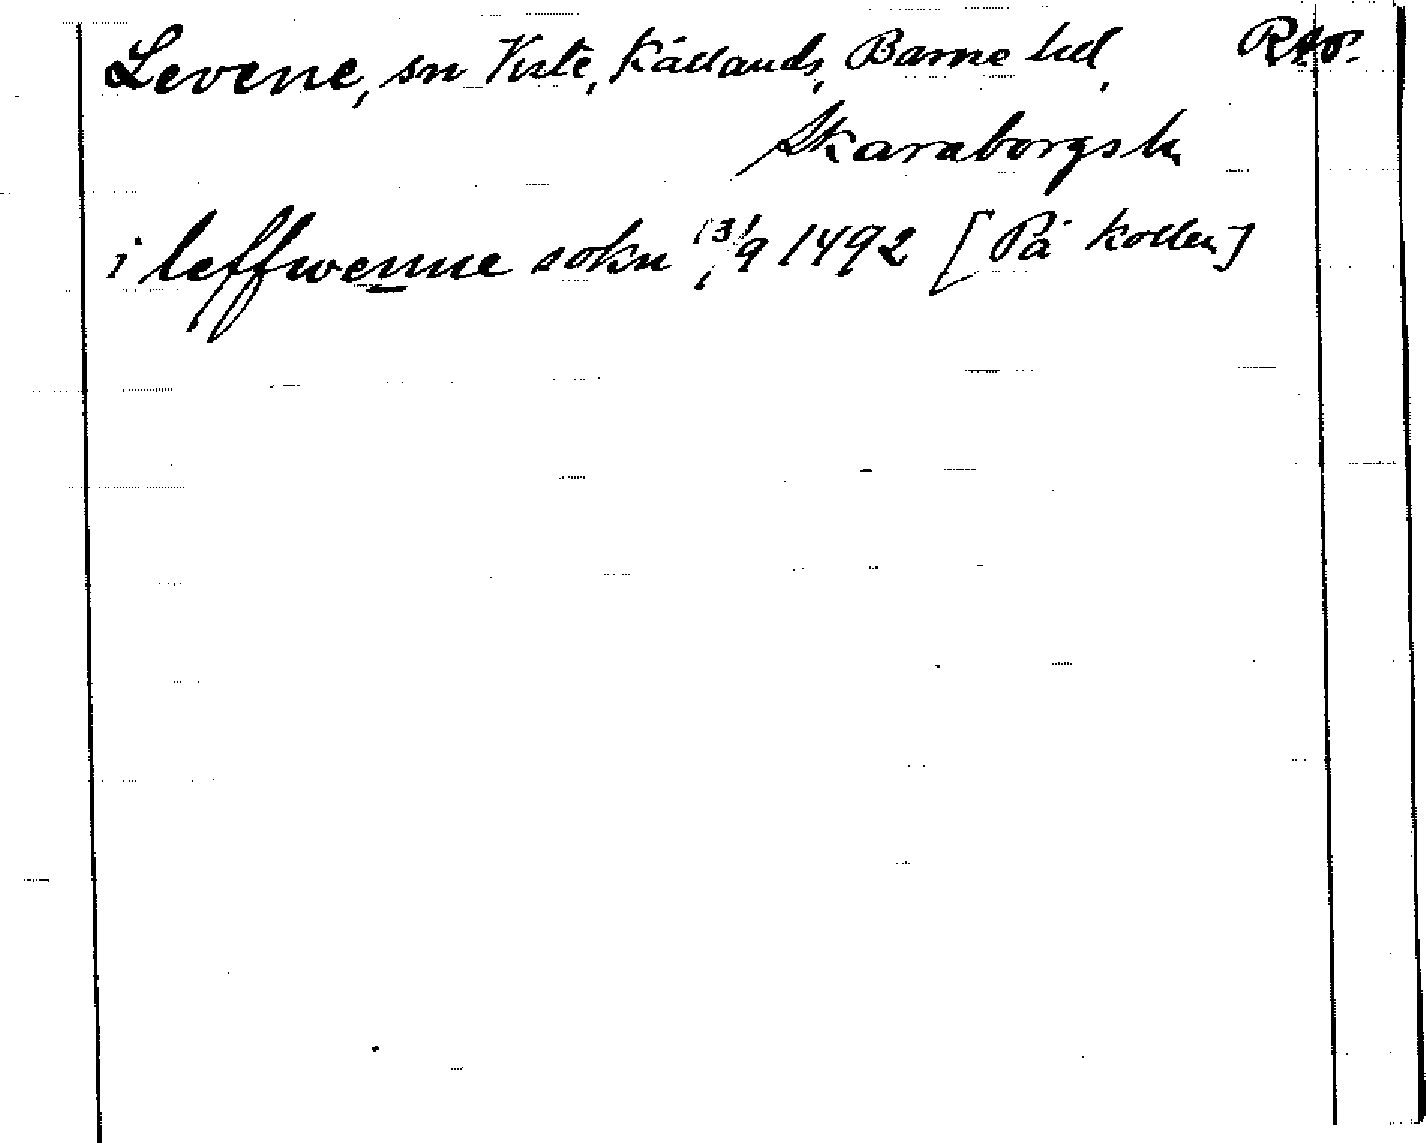 Levene, sn Viste, Kållands, Barne hd, RAp.
Skaraborgs l.
i leffwenne sokn 13/9 1492 [På kollen]